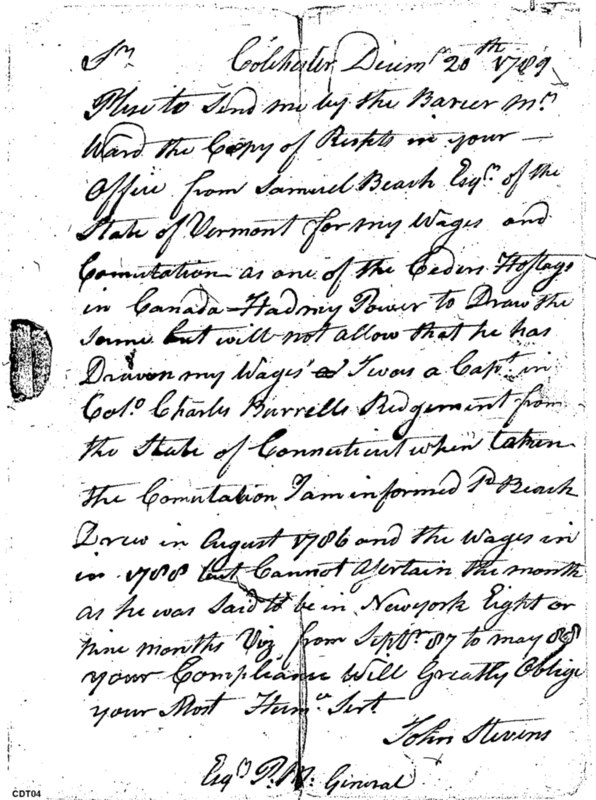 Sr Colchester Decemr 20th 1789
Plese to Send me by the Barier Mr
Ward the Copy of Resipts in your
Office from Samuel Beach Esqr of the
State of Vermont for my Wages and
Comutation as one of the Ceders Hostage
in Canada Had my Power to Draw the
Same but will not allow that he has
Drawn my Wages I was a Capt in
Colo Charles Burrells Redgement from
the State of Connecticut when taken
the Comutation I am informed Sd Beach
Drew in August 1786 and the Wages in
in 1788 but Cannot Asertain the month
as he was Said to be in Newyork Eight or
nine months Viz from Septr 87 to may 88
your Compliance Will Greatly Oblige
your Most Humle Sert
John Stevens
Esqr P. M. General
CDT04